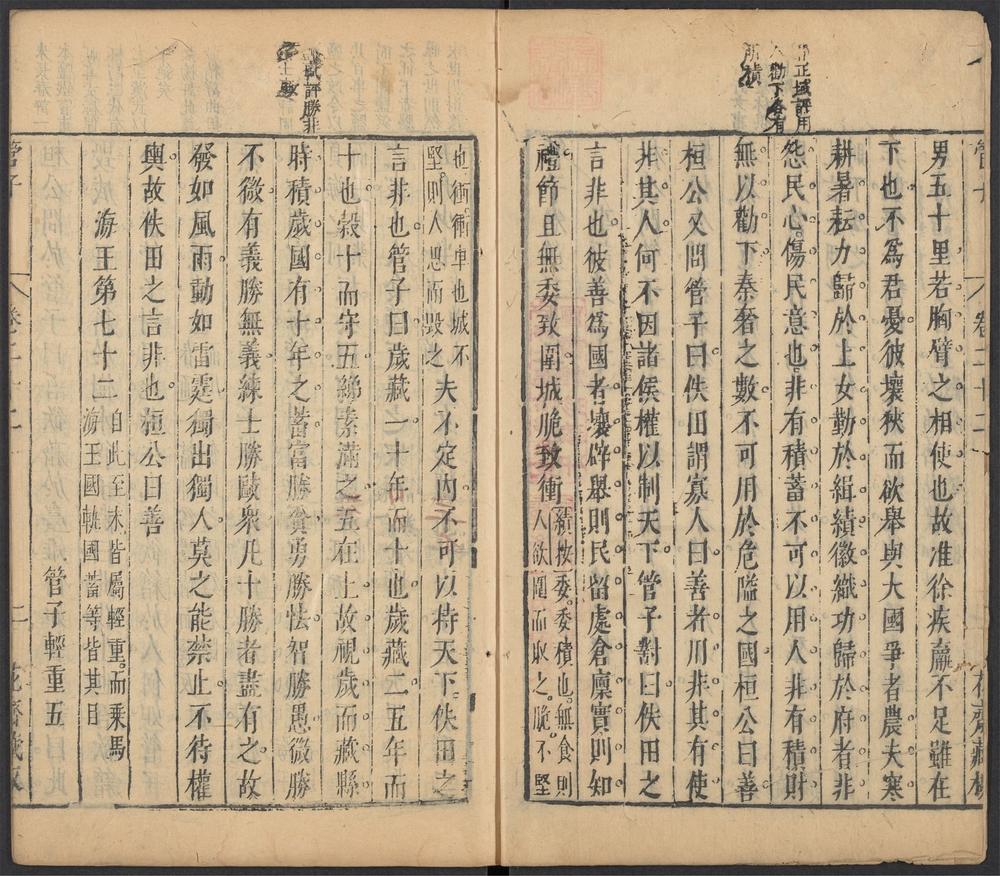 男五十里若胸臂之相使也故准徐疾羸不足雖在
下也不爲君憂彼壤狹而欲舉與大國爭者農夫寒
耕暑耘力歸於上女勤於緝績徽織功歸於府者非
怨民心傷民意也非有積蓄不可以用人非有積財
無以勸下泰奢之數不可用於危隘之國桓公曰善
桓公又問管子曰佚田謂寡人曰善者川非其有使
非其人何不因諸侯權以制天下管子對曰佚田之
言非也彼善爲國者壤辟舉則民留處倉廩實則知
禮節且無委致圍城脆致衝
績按委委積也無食則
人欲圍而取之脆不堅
也衝衝車也城不
堅則人思而毀之
夫不定內不可以持天下佚田之
言非也管子曰歲藏一十年而十也歲藏二五年而
十也穀十而守五綈素滿之五在上故視歲而藏縣
時積歲國有十年之蓄富勝貧勇勝怯智勝愚微勝
不微有義勝無義練士勝敺衆凡十勝者盡有之故
發如風雨動如雷霆獨出獨入莫之能禁止不待權
輿故佚田之言非也桓公曰善
海王第七十二
自此至末皆屬輕重而乘馬
海王國軌國蓄等皆其目
管子輕重五
管子
卷二十二